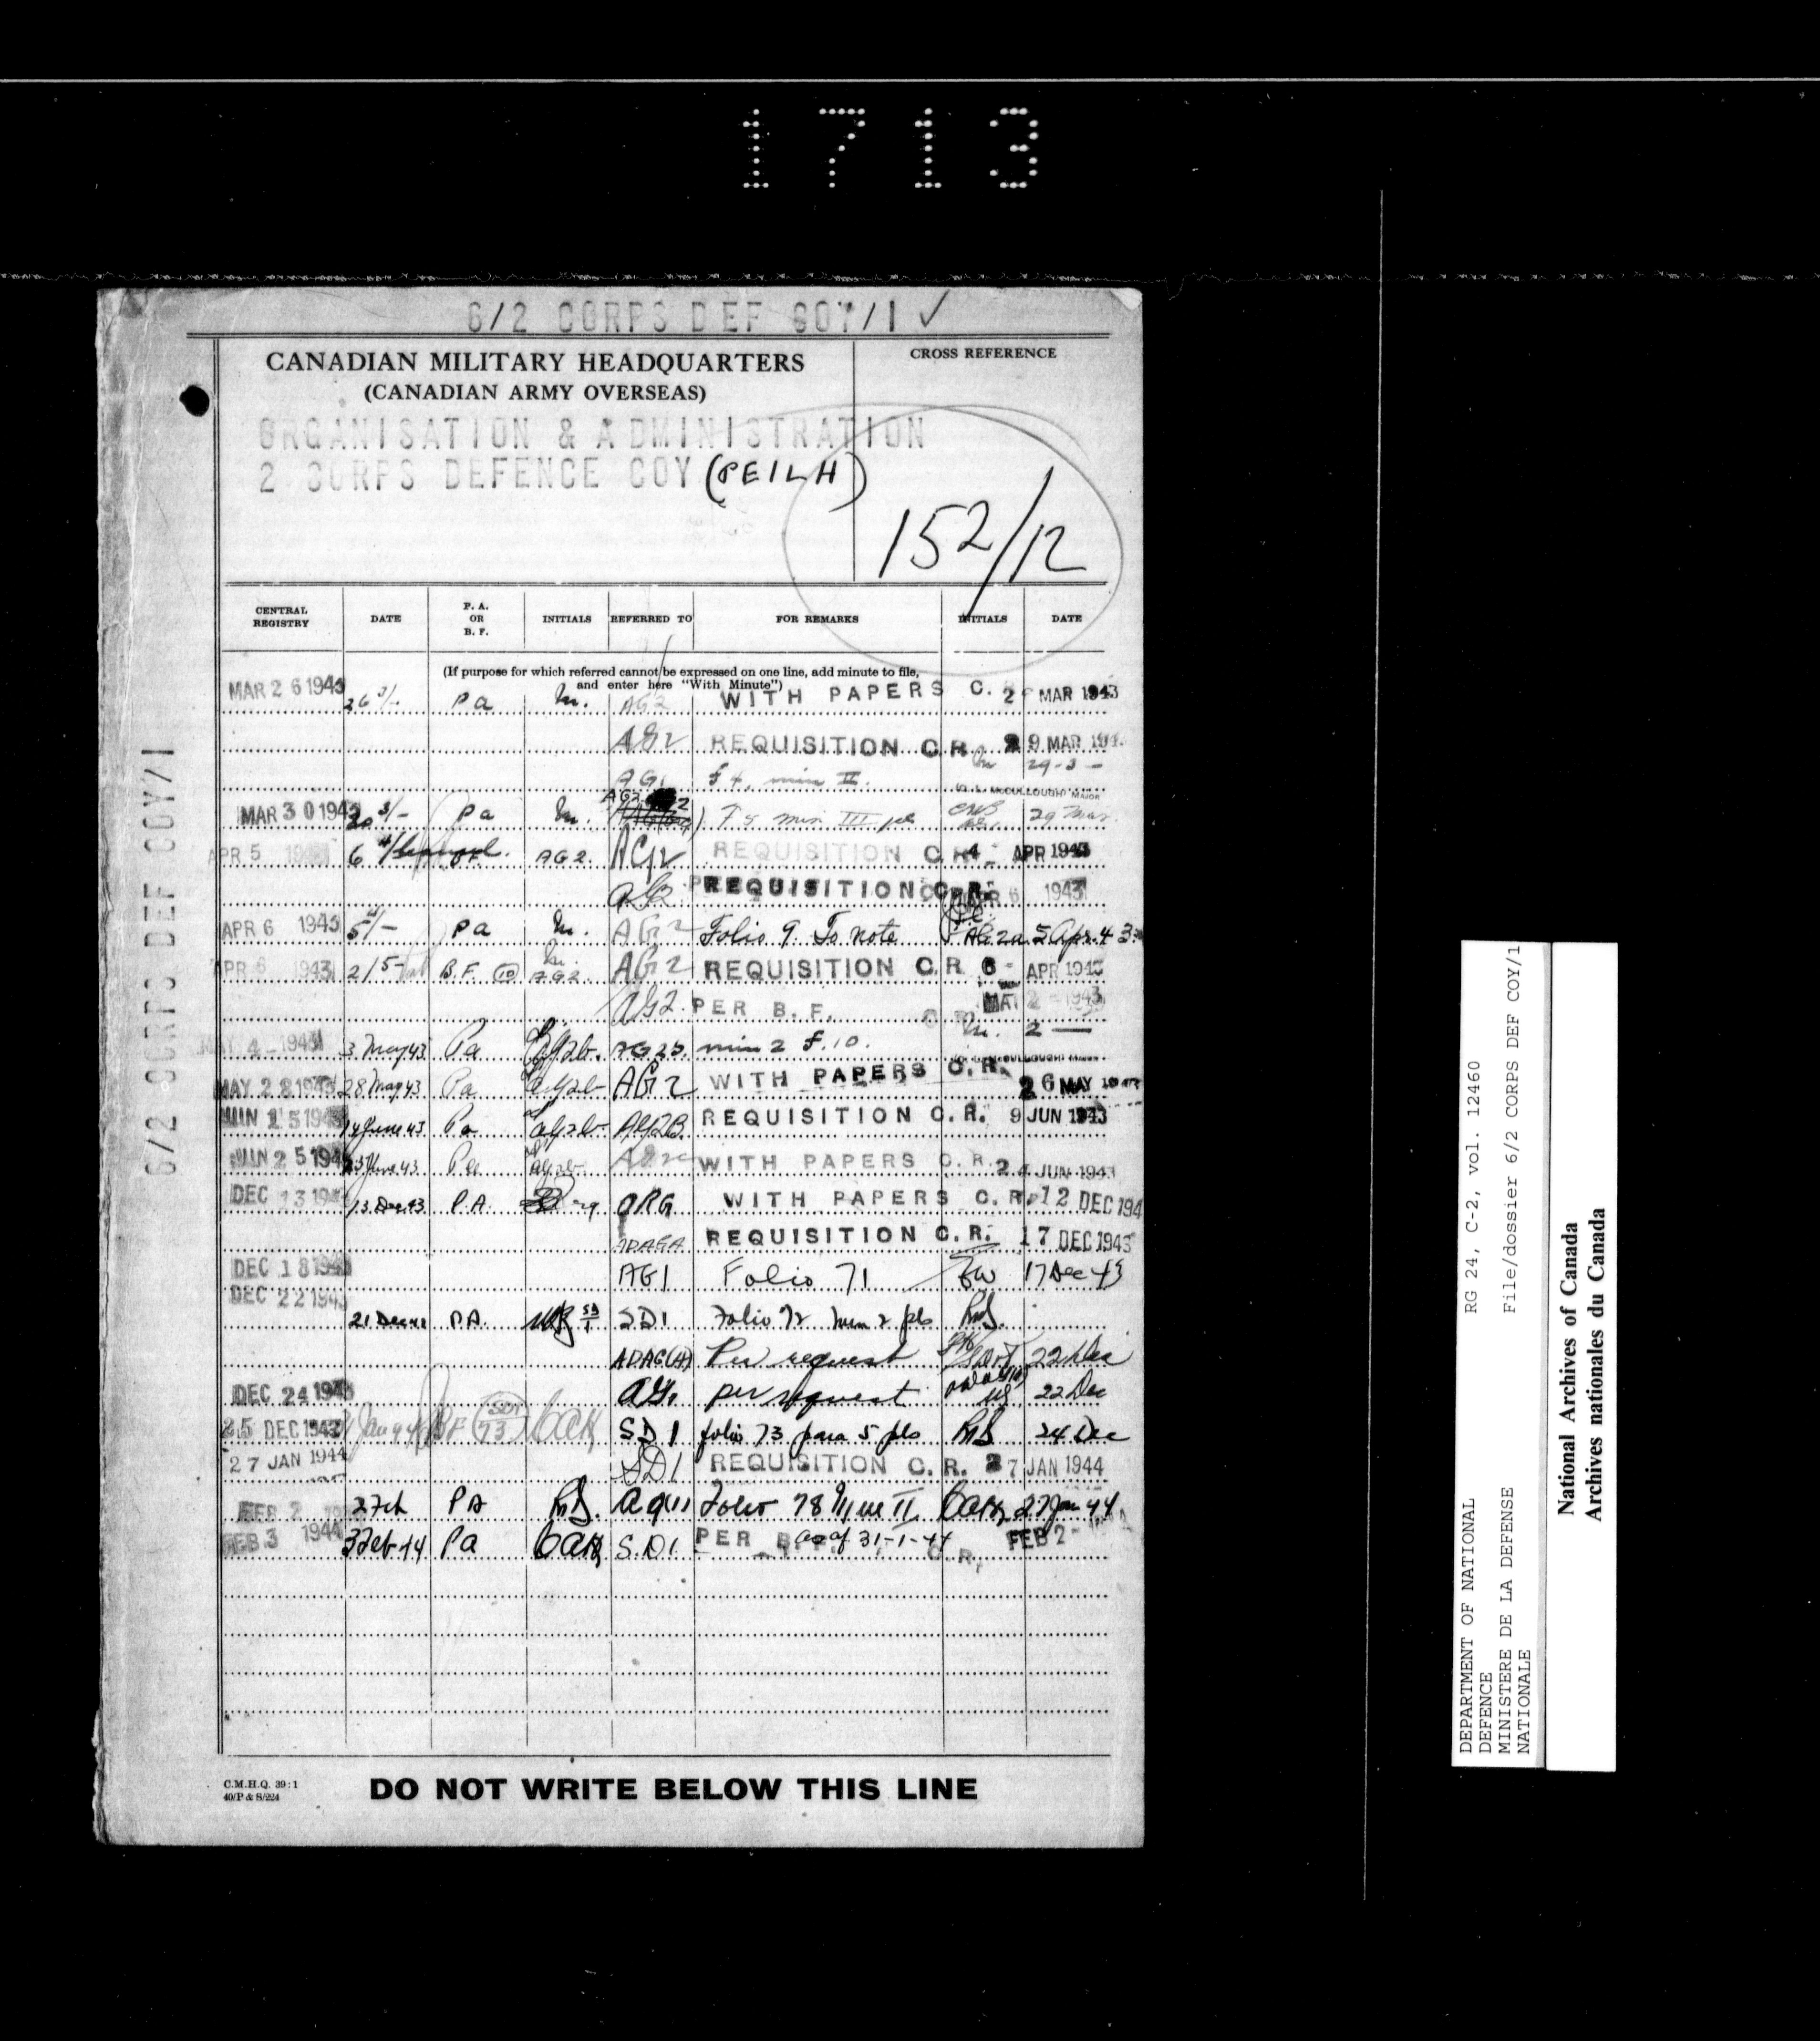 1713
6/2 CORPS DEF COY/1 ✓
CANADIAN MILITARY HEADQUARTERS
(CANADIAN ARMY OVERSEAS)
CROSS REFERENCE
ORGANISATION & ADMINISTRATION
2 CORPS DEFENCE COY (PEILH)
152/12
CENTRAL REGISTRY DATE P. A. OR B. F. INITIALS REFERRED TO FOR REMARKS INITIALS DATE
(If purpose for which referred cannot be expressed on one line, add minute to file,
and enter here "With Minute")
MAR 26 1943 26 3/- Pa AG2 WITH PAPERS C. MAR 1943
AG2 REQUISITION C.R. 29 MAR 194
29-3-
AG1 F 4, min II.
MAR 30 1943 3/- Pa AG2 F 5 min III pl 29 Mar.
APR 5 6 4/- BF. AG2. AG2 REQUISITION C.R. 4 - APR 1943
AG2 REQUISITION C.R. APR 6 1943
APR 6 1943 5 4/- Pa AG2 Folio 9. To note AG2a 5 Apr. 43
APR 6 1943 2/5- B.F. (10) AG2. AG2 REQUISITION C.R. 6 - APR 1943
AG2. PER B. F. MAY 2 - 1943
2 —
MAY 4 - 1943 3 May 43 Pa AG2b. min 2 F.10.
MAY 28 1943 28 May 43 Pa ag2b AG2 WITH PAPERS C.R. 26 MAY 1943
JUN 15 1943 14 June 43 Pa ag2b AG2B. REQUISITION C.R. 9 JUN 1943
JUN 25 194 June 43 Pa ag2b WITH PAPERS C.R. 24 JUN 1943
DEC 13 194 13 Dec 43 P.A. ORG WITH PAPERS C.R. 12 DEC 194
ADAGA REQUISITION C.R. 17 DEC 1943
DEC 18 1943 AG1 Folio 71 17 Dec 43
DEC 22 1943
21 Dec PA. SD1 Folio 72 min 2 pls RS.
ADAG(A) Per request 22 Dec
DEC 24 194 AG1 per request 22 Dec
25 DEC 1943 Jan 44 BF SD1 73 SD1 folio 73 para 5 pls RS 24 Dec
27 JAN 1944 SD1 REQUISITION C.R. 27 JAN 1944
FEB 2 2 Feb PA RS. AG(1) Folio 78 Min II 27 Jan 44
FEB 3 1944 3 Feb 44 Pa S.D1. PER B as of 31-1-44 C.R. FEB 2
C.M.H.Q. 39:1
40/P & S/224
DO NOT WRITE BELOW THIS LINE
6/2 CORPS DEF COY/1
DEPARTMENT OF NATIONAL DEFENCE
MINISTERE DE LA DEFENSE NATIONALE
RG 24, C-2, vol. 12460
File/dossier 6/2 CORPS DEF COY/1
National Archives of Canada
Archives nationales du Canada